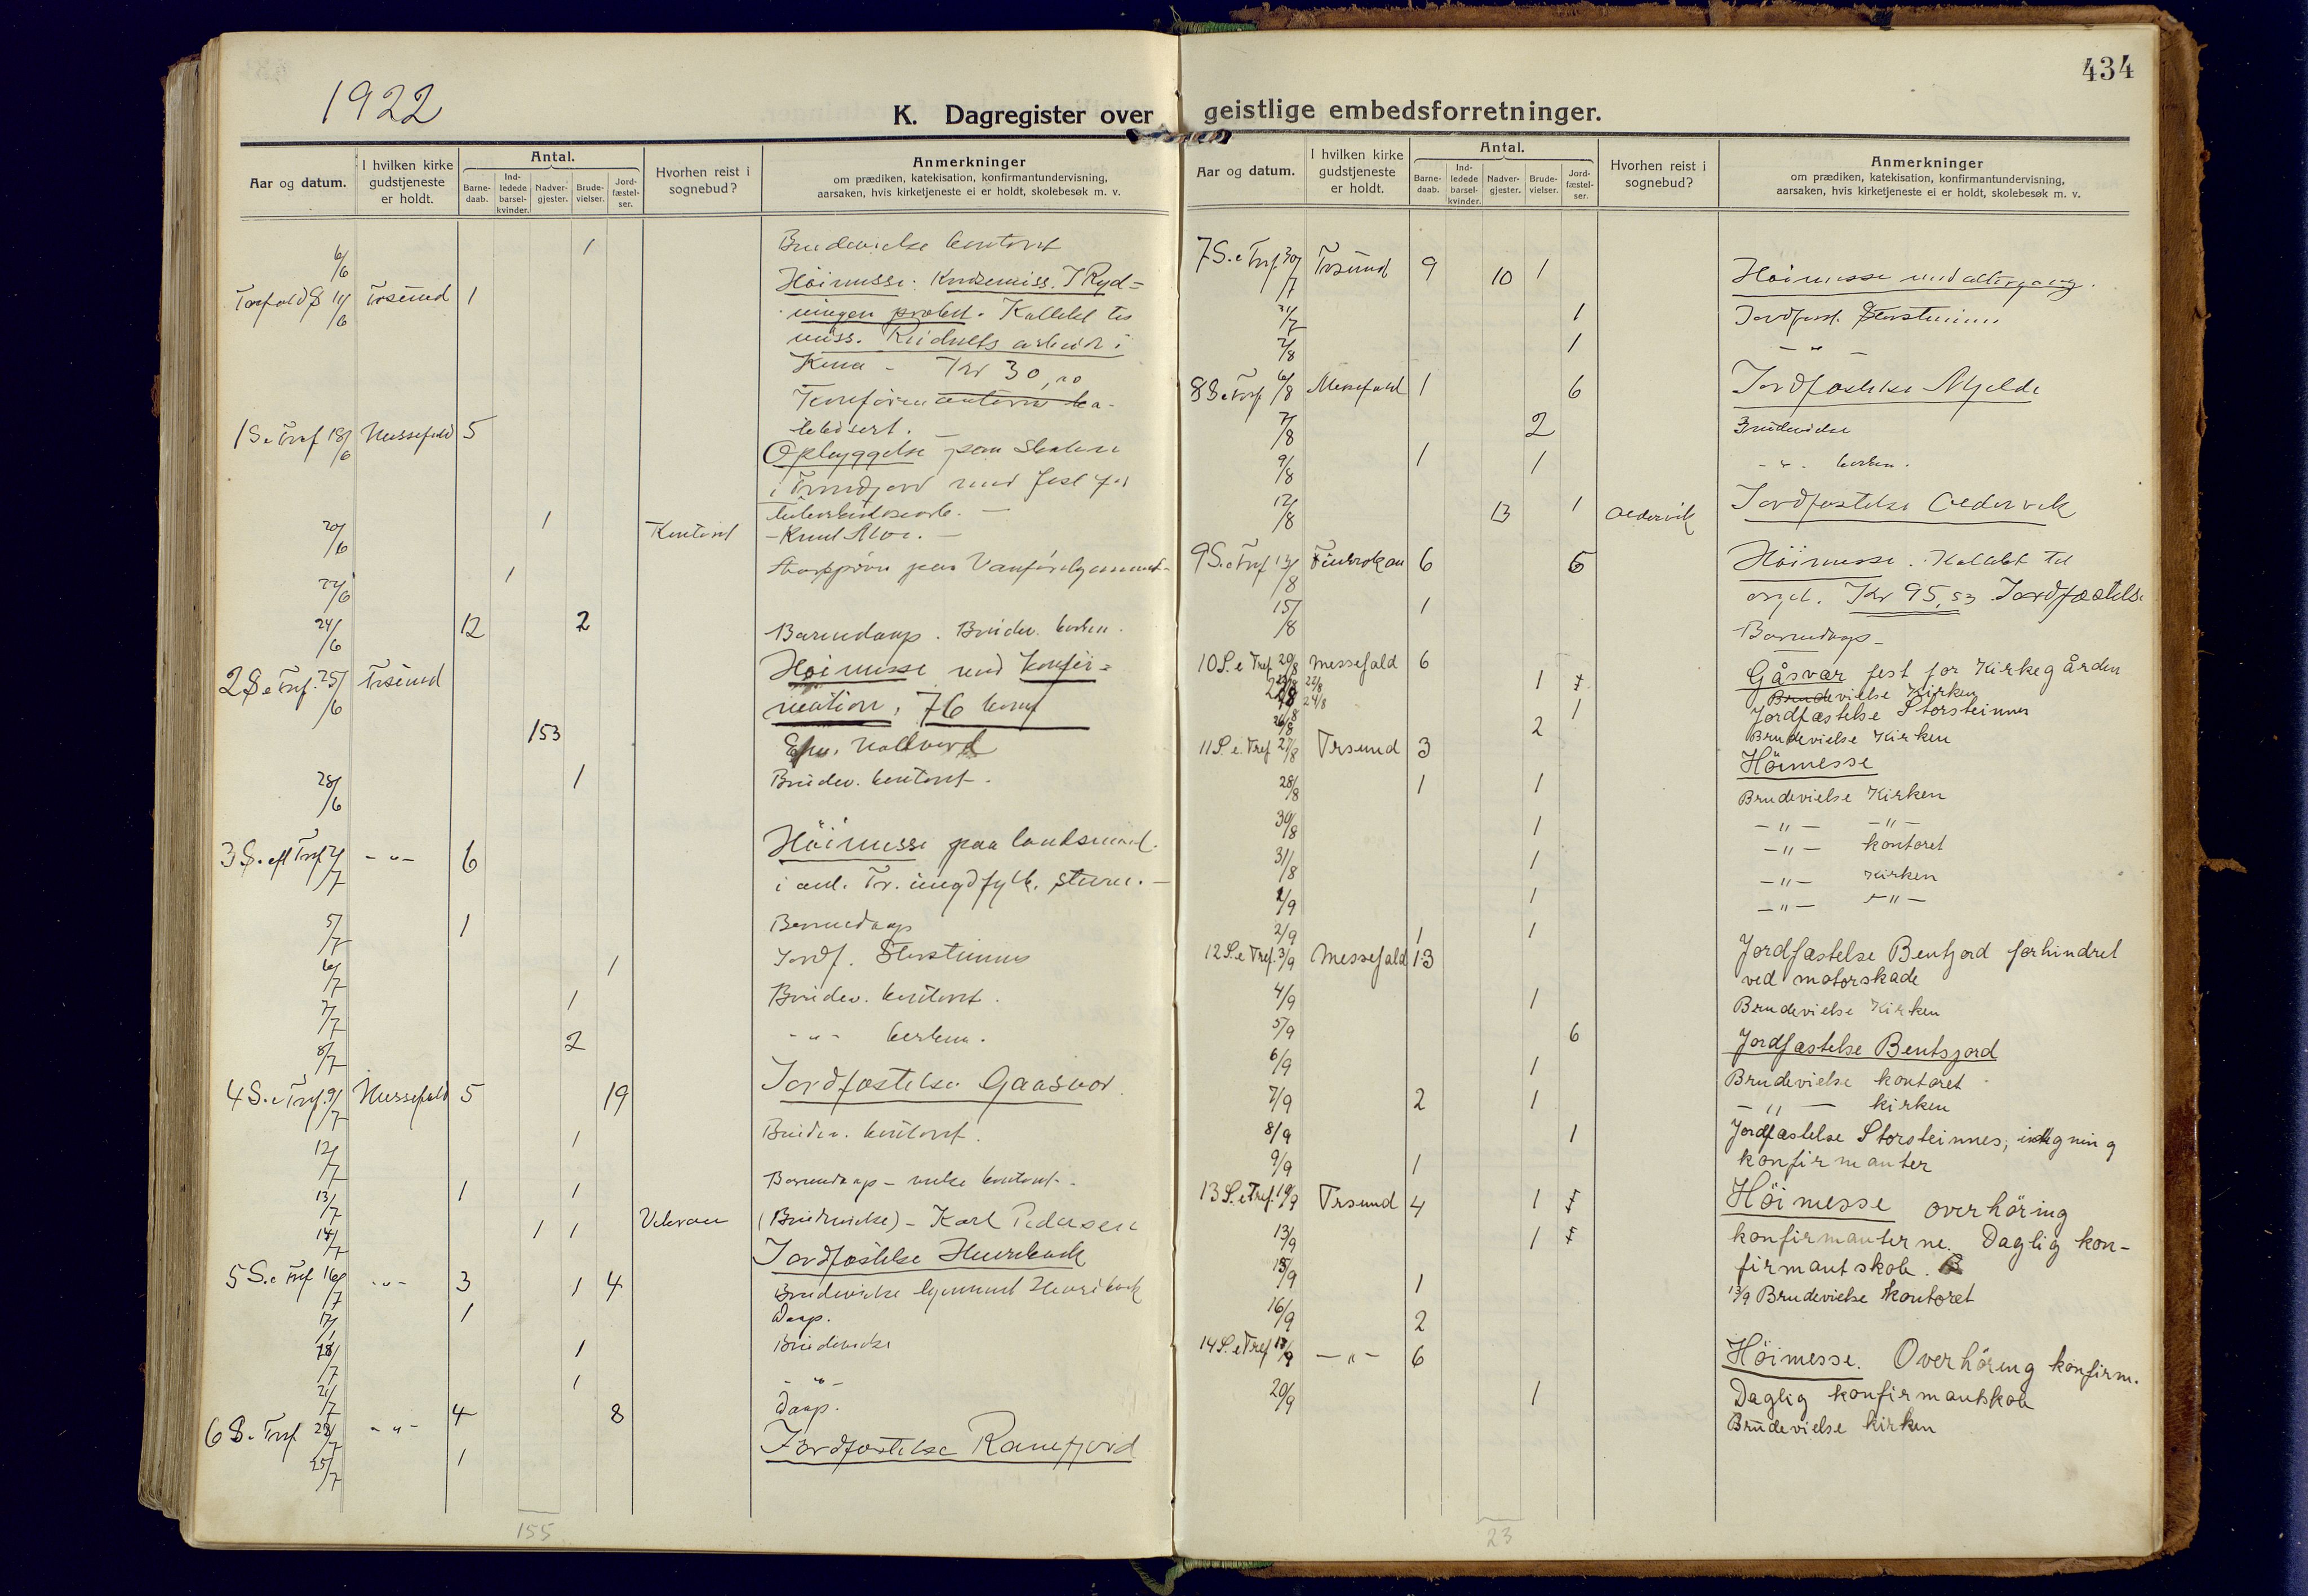 1922
434
K. Dagregister over geistlige embedsforretninger.
Aar og datum.
I hvilken kirke gudstjeneste er holdt.
Antal.
Barne-daab.
Ind-ledede barsel-kvinder.
Nadver-gjester.
Brude-vielser.
Jord-fæstel-ser.
Hvorhen reist i sognebud?
Anmerkninger
om prædiken, katekisation, konfirmantundervisning,
aarsaken, hvis kirketjeneste ei er holdt, skolebesøk m. v.
6/6 1 Brudevielse kontoret
11/6 Trsund 1 Höimesse.
Kollekt til
miss. arbeide i
Kina - Kr 30,00
1 S. e Tref 18/6 Messefald 5
Opbyggelse paa
i med fest for
20/6 1 Kontoret
22/6 1
24/6 12 2 Barnedaap. Brudev. kirken.
2 S. e Tref. 25/6 Trsund Höimesse med konfir=
mation, 76 konf
153
28/6 1 Brudev. kontoret.
3 S. eft Tref 2/7 - " - 6 Höimesse paa landsmaal.
i anl. Tr. ungd fylk. stevne. -
5/7 1 Barnedaap
6/7 1 Jordf. Storsteinnes
7/7 1 Brudev. kontoret.
8/7 2 - " - kirken.
4 S. e Tref. 9/7 Messefald 5 19 Jordfæstelse Gaasvær
12/7 1 Brudev. kontoret.
13/7 1 1 Barnedaap - vielse kontoret.
14/7 1 1 (Brudevielse) - Karl Pedersen
Jordfæstelse
5 S. e Tref 16/7 - " - 3 1 4 Brudevielse
17/7 1 Daap.
18/7 1 Brudevielse
21/7 1 - " -
6 S. e Tref 23/7 - " - 4 8 Daap.
25/7 1 Jordfæstelse
155
Aar og datum.
I hvilken kirke gudstjeneste er holdt.
Antal.
Barne-daab.
Ind-ledede barsel-kvinder.
Nadver-gjester.
Brude-vielser.
Jord-fæstel-ser.
Hvorhen reist i sognebud?
Anmerkninger
om prædiken, katekisation, konfirmantundervisning,
aarsaken, hvis kirketjeneste ei er holdt, skolebesøk m. v.
7 S. e Tref. 30/7 Trsund 9 10 1 Höimesse med altergang.
31/7 1 Jordfæst. Storsteinnes
2/8 1 - " -
8 S. e Tref 6/8 Messefald 1 6 Jordfæstelse Mjelde
7/8 2 Brudevielse
9/8 1 1 - " - kirken.
12/8 13 1 Oldervik Jordfæstelse Oldervik
9 S. e Tref 13/8 6 6 Höimesse. Kollekt til
orgel. Kr 95,53 Jordfæstelse
15/8 1 Barnedaap -
10 S. e Tref 20/8 Messefald 6 Gåsvær fest for Kirkegården
22/8 1 Brudevielse Kirken
24/8 1 Jordfæstelse Storsteinnes
26/8 2 Brudevielse Kirken
11 S e. Tref 27/8 Trsund 3 Höimesse
28/8 1 1 Brudevielse Kirken
30/8 1 - " - - " -
31/8 1 - " - kontoret
1/9 1 - " - Kirken
2/9 1 1 - " - - " -
12 S. e Tref. 3/9 Messefald 13 Jordfæstelse Bentjord forhindret
ved motorskade
4/9 1 Brudevielse Kirken
5/9 6 Jordfæstelse Bentsjord
6/9 1 Brudevielse kontoret
7/9 2 1 - " - kirken
8/9 1 Jordfæstelse Storsteinnes, indtegning
9/9 1 konfirmanter
13 S. e Tref. 10/9 Trsund 4 1 Höimesse overhöring
13/9 1 konfirmanterne. Daglig kon-
15/9 1 firmantskole.
13/9 Brudevielse kontoret
16/9 2
14 S. e Tref 17/9 - " - 6 Höimesse. Overhöring konfirm.
20/9 1 Daglig konfirmantskole
Brudevielse kirken
23